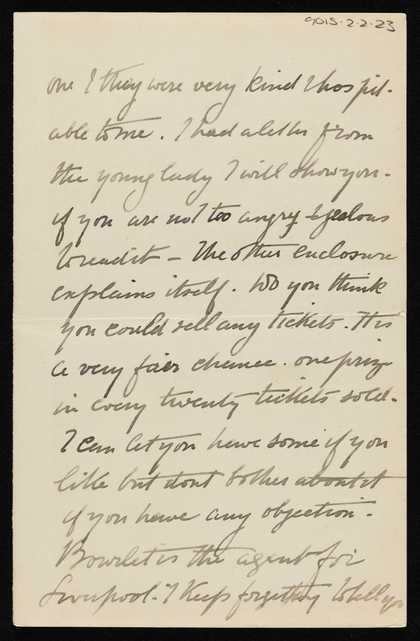 9015-2-2-23
one & they were very kind & hospit-
able to me. I had a letter from
the young lady I will show you -
if you are not too angry & jealous
to read it - The other enclosure
explains itself. Do you think
you could sell any tickets. It is
a very fair chance. one prize
in every twenty tickets sold -
I can let you have some if you
like but dont bother about it
if you have any objection -
is the agent for
Liverpool - I keep forgetting to tell you